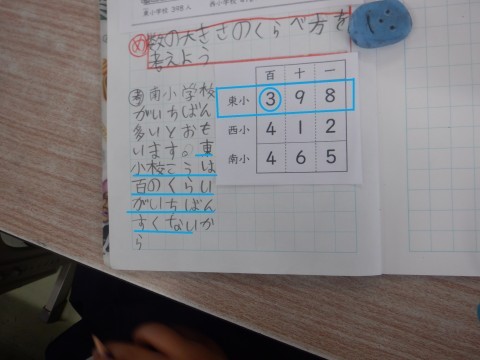 東小学校 398人
め 数の大きさのくらべ方を
考えよう
考 南小学校
がいちばん
多いとおも
います。東
小校こうは
百のくらい
がいちばん
すくないか
ら
百 十 一
東小 3 9 8
西小 4 1 2
南小 4 6 5